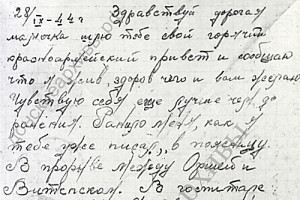 28/IX-44 г Здравствуй дорогая
мамочка шлю тебе свой горячий
красноармейский привет и сообщаю
что я жив, здоров чего и вам желаю
Чувствую себя еще лучше чем до
ранения. Ранило меня, как я
тебе уже писал, в поясницу
В прорыве между Оршей и
Витебском. В госпитале